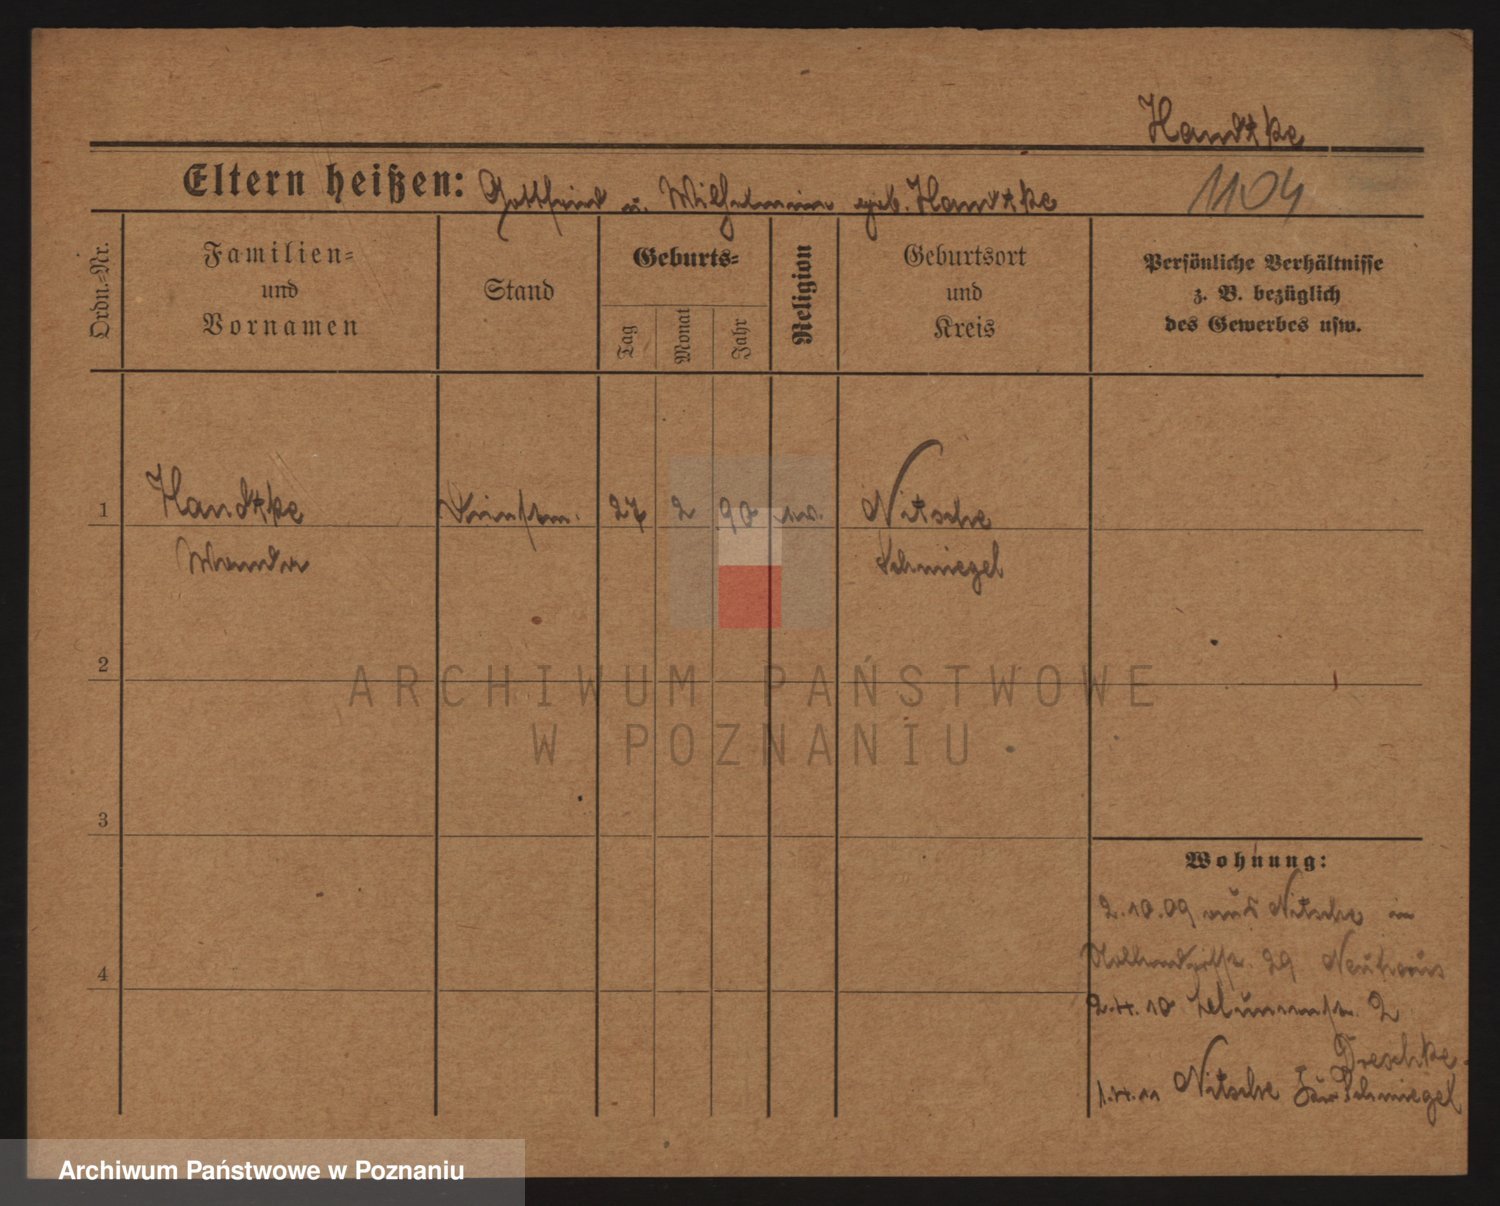 Handtke
Eltern heißen: Gottfried u. Wilhelmine geb. Handtke
1104
Ordn.-Nr.
Familien-
und
Vornamen
Stand
Geburts-
Tag
Monat
Jahr
Religion
Geburtsort
und
Kreis
Persönliche Verhältnisse
z. B. bezüglich
des Gewerbes usw.
1 Handtke 27 2 90 Nitsche
Wanda Schmiegel
2
ARCHIWUM PAŃSTWOWE
W POZNANIU
3
Wohnung:
2.10.09 aus Nitsche in
29 Neuhaus
4
2.4.10 2
Dreschke
1.4.11 Nitsche Schmiegel
Archiwum Państwowe w Poznaniu